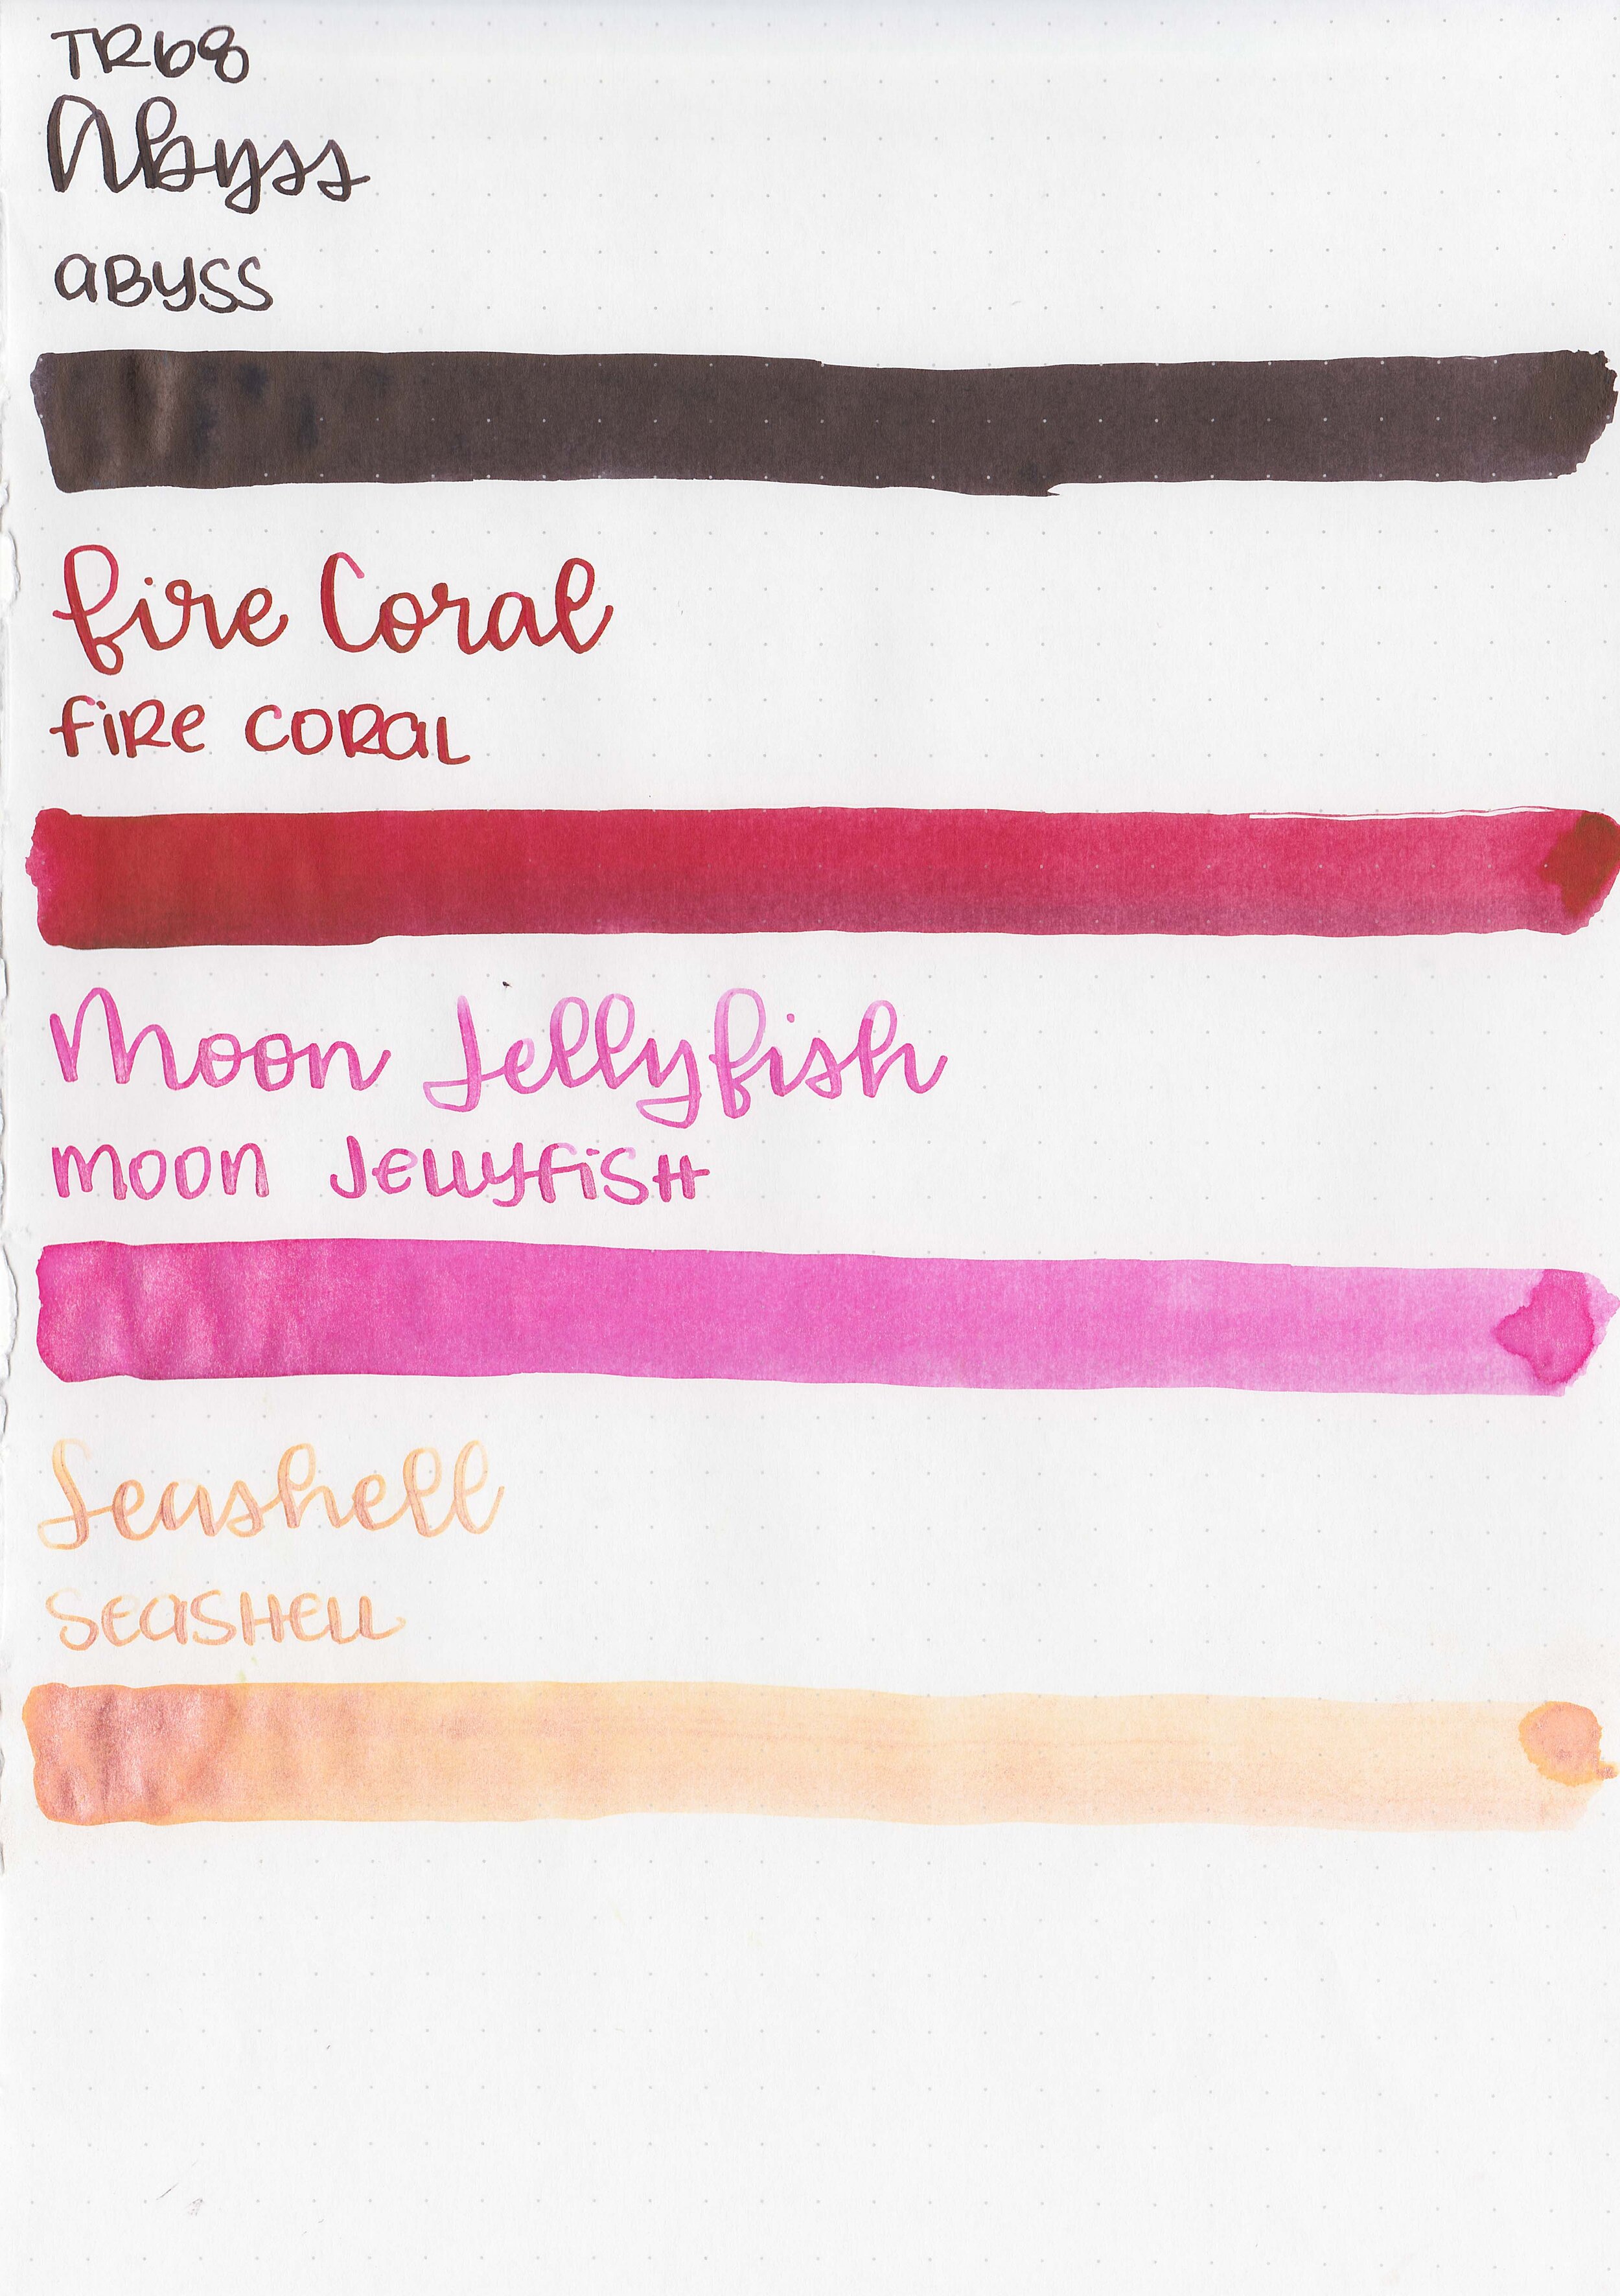 TR68
Abyss
aBYSS
fire Coral
fiRe CORaL
Moon Jellyfish
mOOn JeLLYfiSH
Seashell
SeaSHeLL